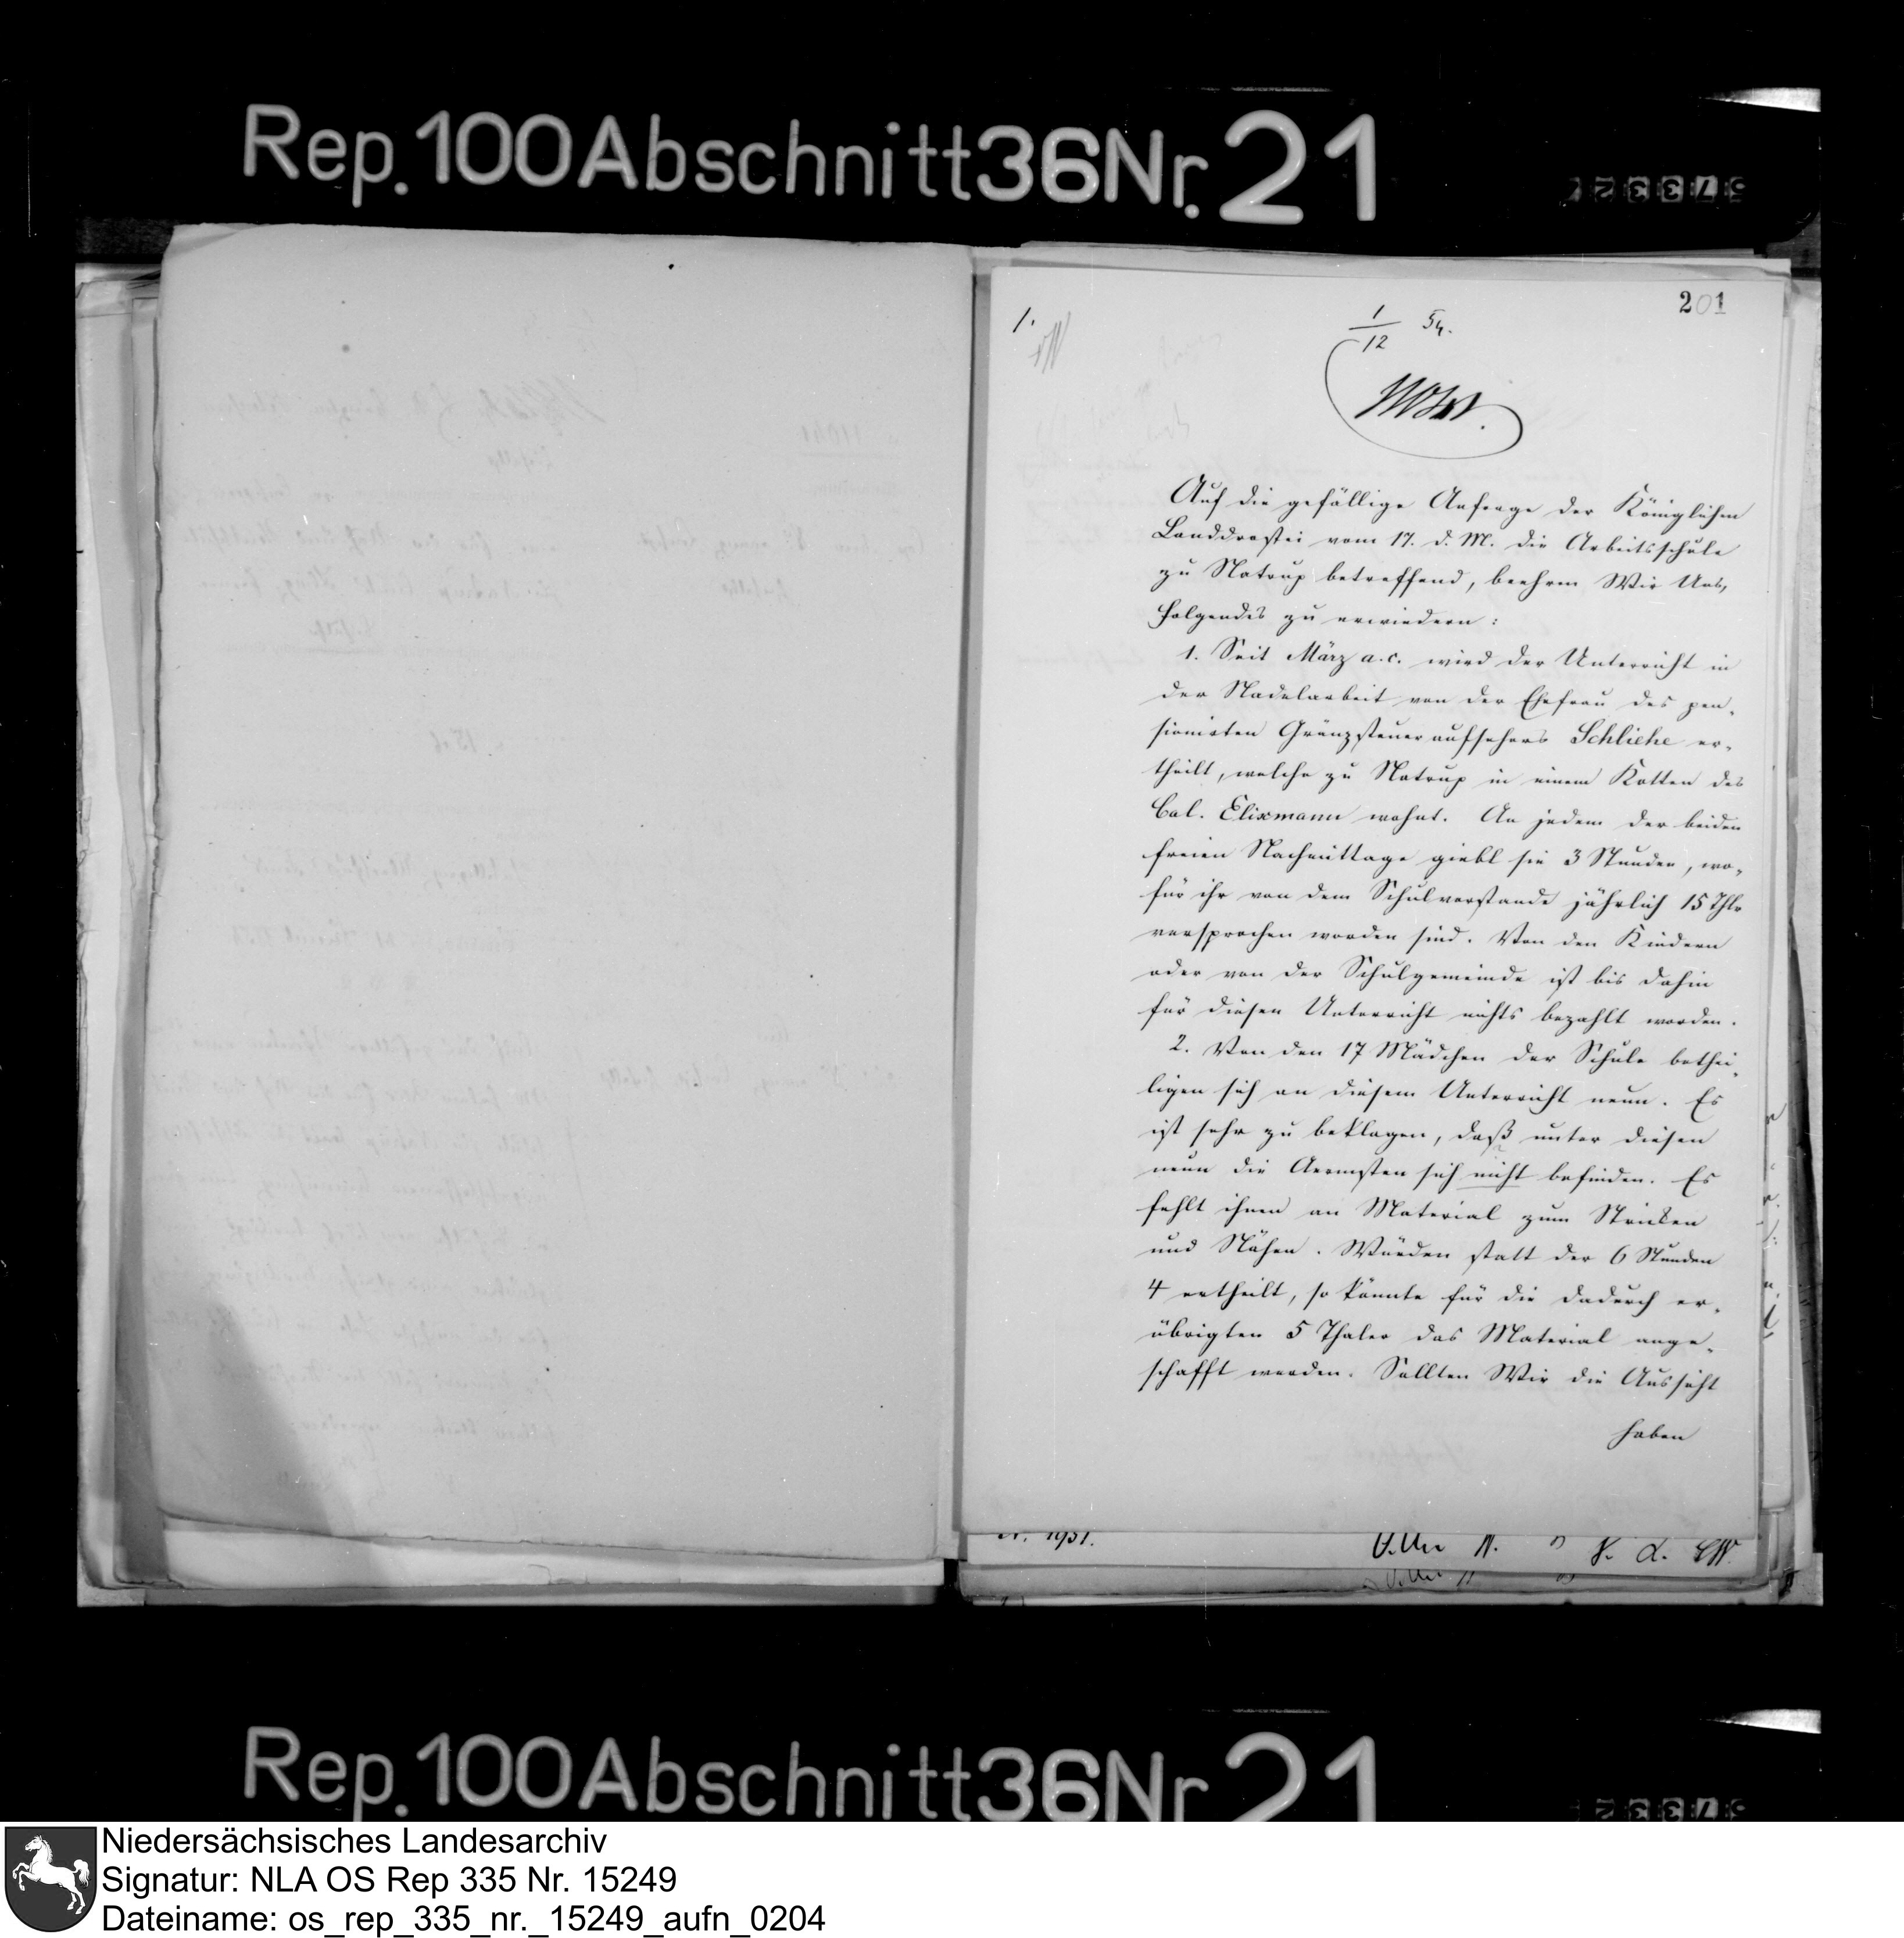 Rep. 100 Abschnitt 36 Nr. 21
201
1.
1/12 54.
Auf die gefällige Anfrage der Königlichen
Landdrostei vom 17. d. M. die Arbeitsschule
zu Natrup betreffend, beehren Wir Uns,
Folgendes zu erwiedern:
1. Seit März a. c. wird der Unterricht in
der Nadelarbeit von der Ehefrau des pen-
sionirten Gränzsteueraufsehers Schliehe er-
theilt, welche zu Natrup in einem Kotten des
Col. Elixmann wohnt. An jedem der beiden
freien Nachmittage giebt sie 3 Stunden, wo-
für ihr von dem Schulvorstande jährlich 15 Thlr
versprochen worden sind. Von den Kindern
oder von der Schulgemeinde ist bis dahin
für diesen Unterricht nichts bezahlt worden.
2. Von den 17 Mädchen der Schule bethei-
ligen sich an diesem Unterricht neun. Es
ist sehr zu beklagen, daß unter diesen
neun die Aermsten sich nicht befinden. Es
fehlt ihnen an Material zum Stricken
und Nähen. Würden statt der 6 Stunden
4 ertheilt, so könnte für die dadurch er-
übrigten 5 Thaler das Material ange-
schafft werden. Sollten Wir die Aussicht
haben
Rep. 100 Abschnitt 36 Nr 21
Niedersächsisches Landesarchiv
Signatur: NLA OS Rep 335 Nr. 15249
Dateiname: os_rep_335_nr._15249_aufn_0204